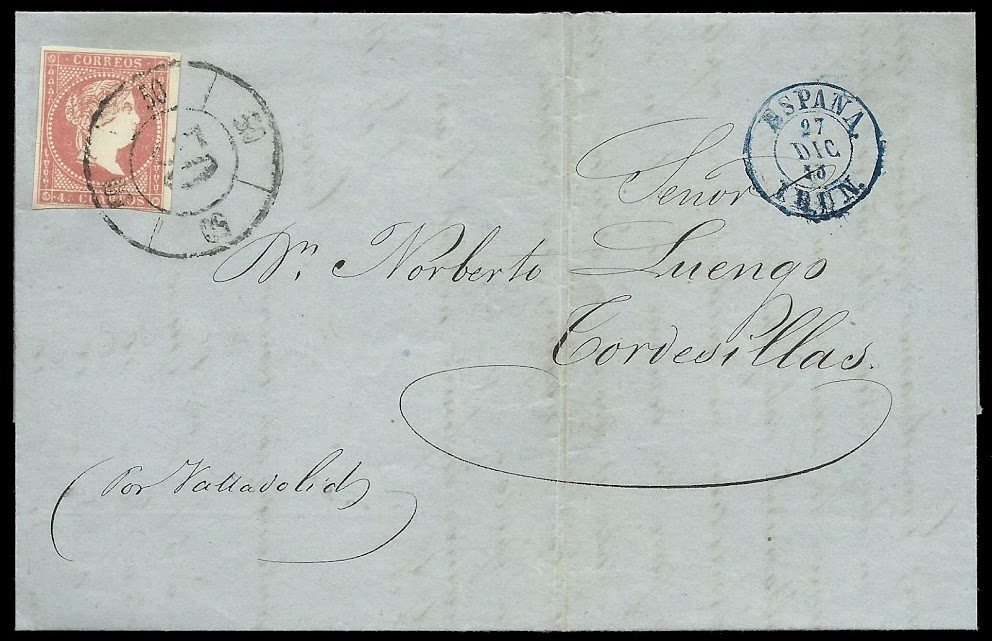 CORREOS
4. CUARTOS
50
50
50
ESPAÑA.
27
DIC.
IRUN.
Señor
Dn. Norberto Luengo
Tordesillas.
Por Valladolid